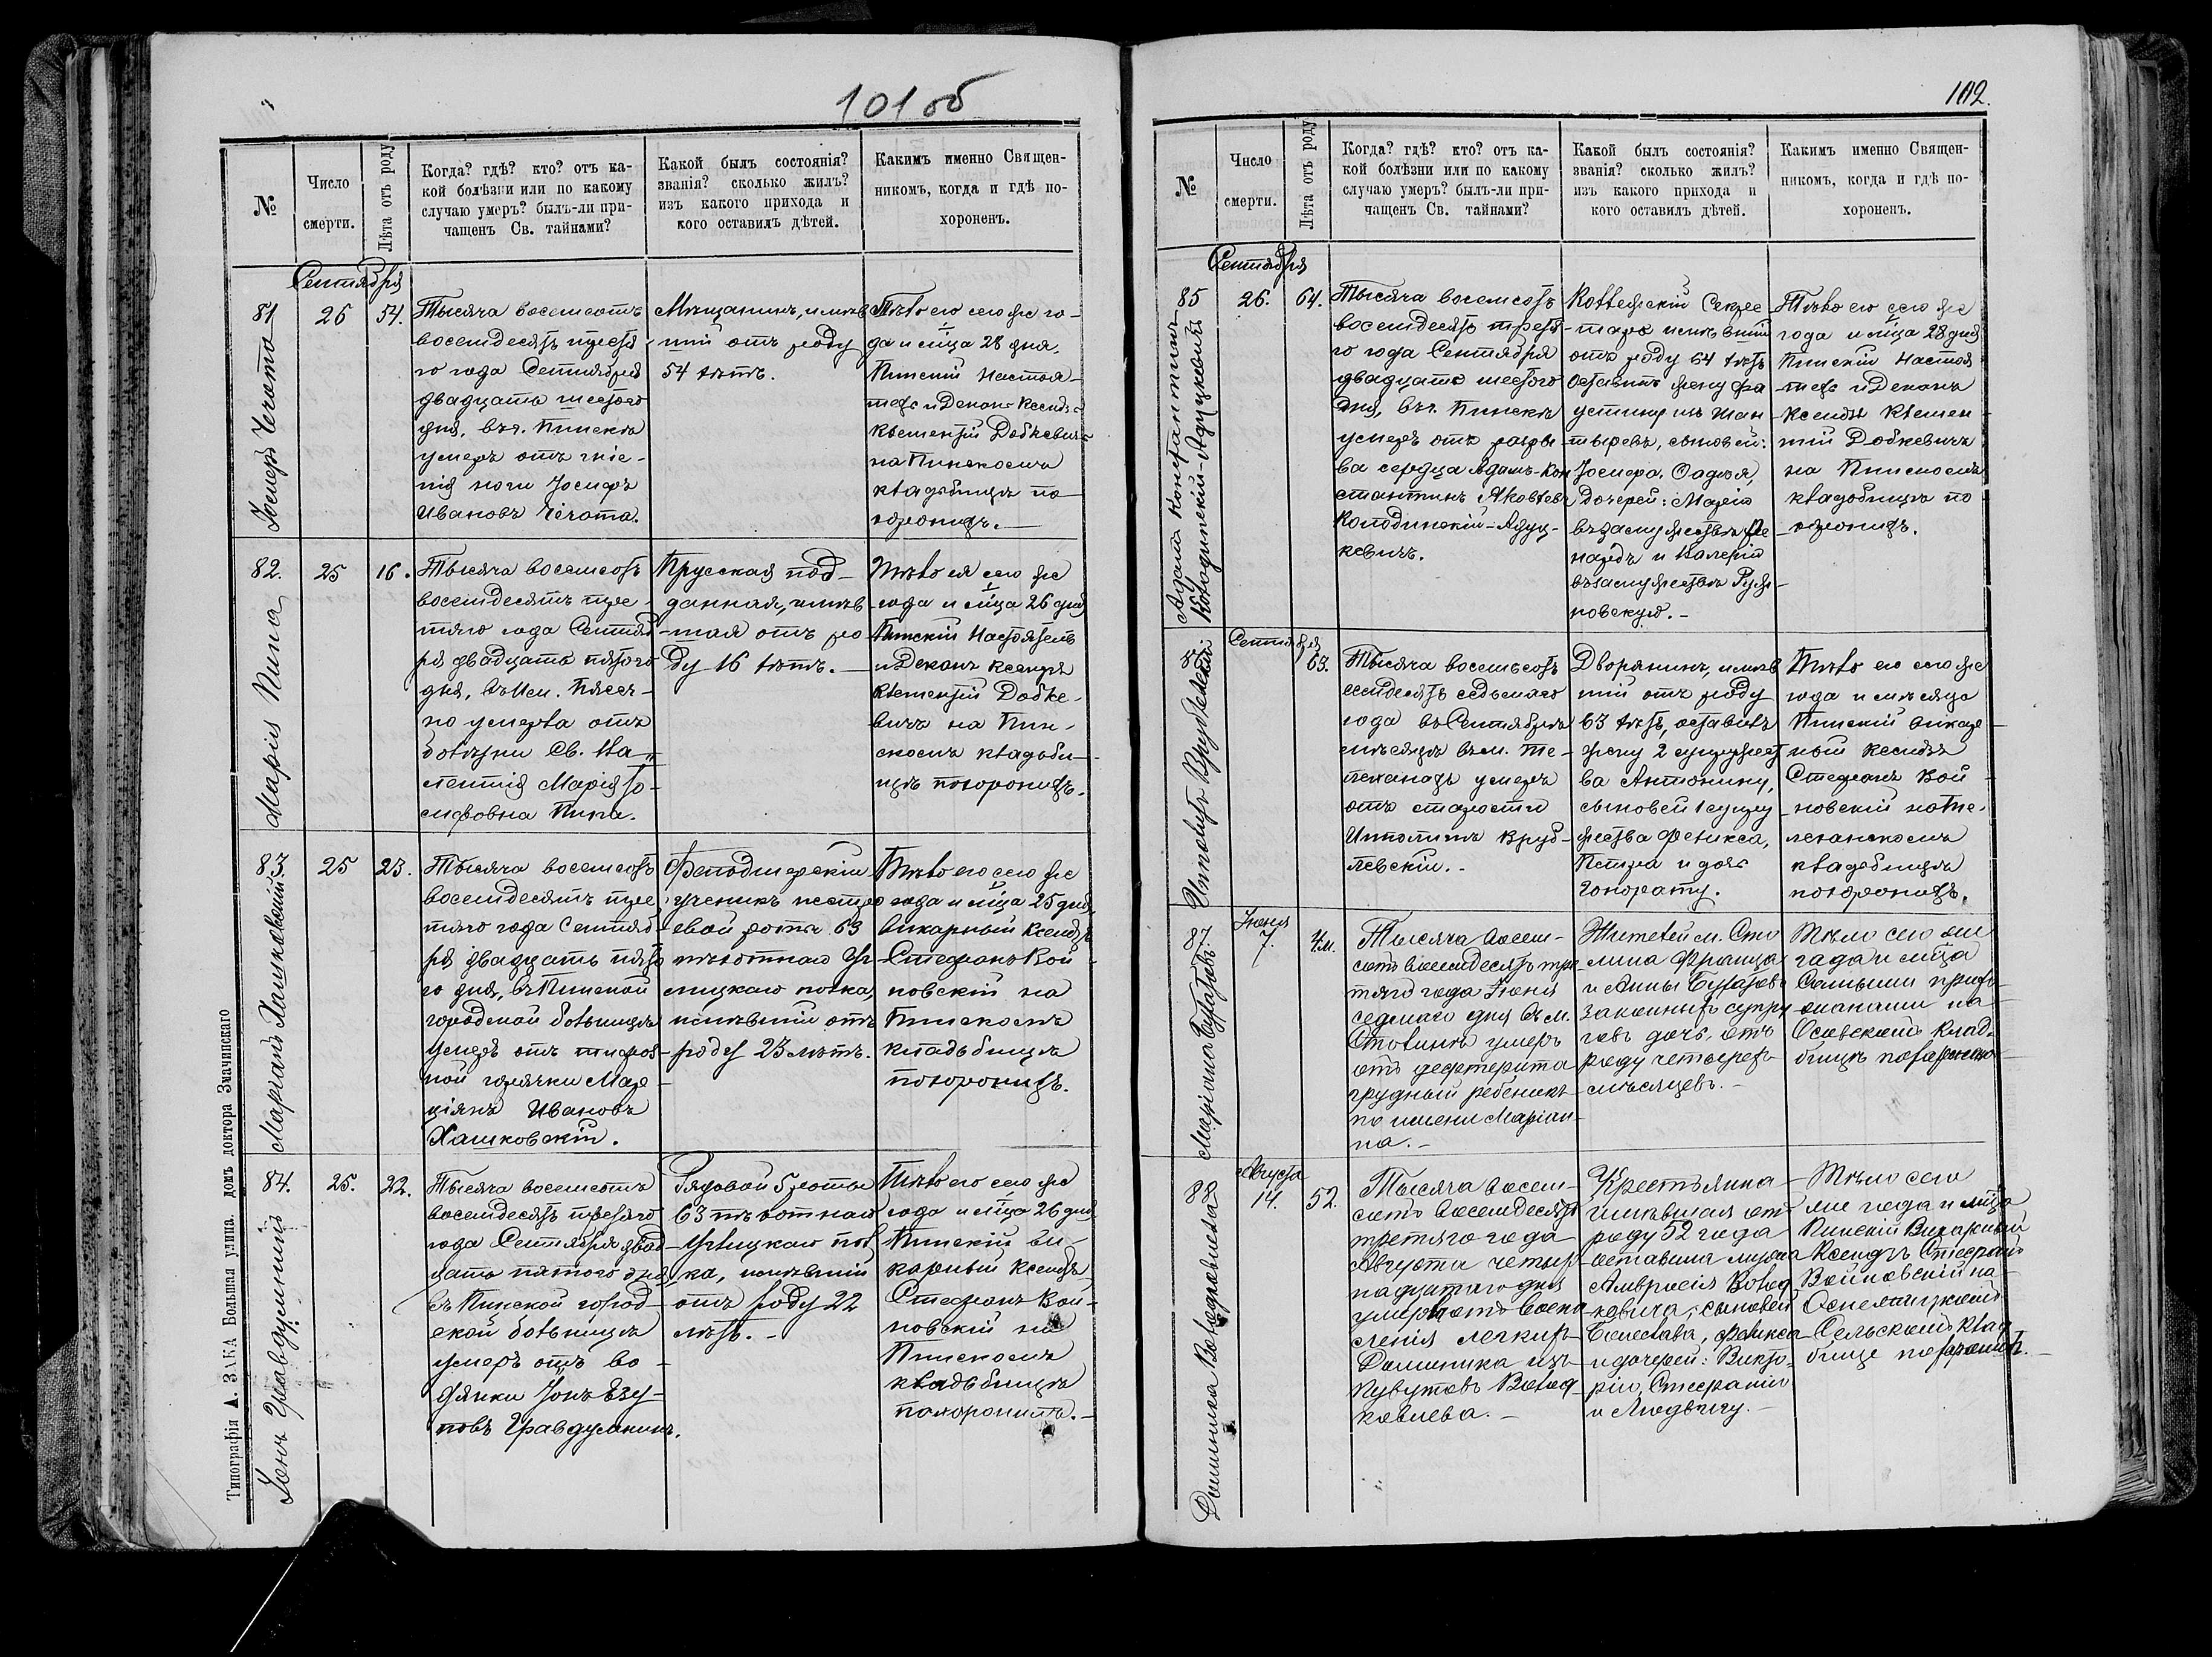 101 об
№
Число
смерти.
Лѣта отъ роду
Когда? гдѣ? кто? отъ ка-
кой болѣзни или по какому
случаю умеръ? былъ-ли при-
чащенъ Св. тайнами?
Какой былъ состоянія?
званія? сколько жилъ?
изъ какого прихода и
кого оставилъ дѣтей.
Какимъ именно Священ-
никомъ, когда и гдѣ по-
хороненъ.
Сентября
81
Іосифъ Чечота
26
54.
Тысяча восемсотъ
восемдесятъ третья
го года Сентября
двадцать шестого
дня, въ г. Пинскѣ
умеръ отъ гніе-
нія ноги Іосифъ
Ивановъ Чечота.
Мѣщанинъ, имѣв
шій отъ роду
54 лѣтъ.
Тѣло его сего же го-
да и мца 28 дня,
Пинскій Настоя-
тель и Деканъ Ксендзъ
Клементій Добкевичъ
на Пинскомъ
кладбищѣ по
хоронилъ.
82.
Марія Пипа
25
16.
Тысяча восемсотъ
восемдесятъ тре-
тяго года Сентяб
ря двадцать пятого
дня, въ им. Плесч-
но умерла отъ
болѣзни Св. Ва-
лентія Марія Іо-
сифовна Пипа.
Прусская под-
данная, имѣв
шая отъ ро
ду 16 лѣтъ.
Тѣло ея сего же
года и мца 26 дня
Пинскій Настоятель
и Деканъ Ксендзъ
Клементій Добке-
вичъ на Пин-
скомъ кладби-
щѣ похоронилъ.
83
Марціанъ Хашковскій
25
23.
Тысяча восемсотъ
восемдесятъ тре
тяго года Сентяб
ря двадцать пято
го дня, въ Пинской
городской больницѣ
умеръ отъ тифоз
ной горячки Мар-
ціянъ Ивановъ
Хашковскій.
Фельдшерскій
ученикъ нестро
евой роты 63
пѣхотнаго Уг-
лицкаго полка,
имѣвшій отъ
роду 23 лѣтъ.
Тѣло его сего же
года и мца 25 дня
викарный Ксендзъ
Стефанъ Вой
новскій на
Пинскомъ
кладьбищѣ
похоронилъ.
84.
Іонъ Гравдулнинъ
25.
22.
Тысяча восемсотъ
восемдесятъ третяго
года Сентября двад
цать пятого дня
въ Пинской город-
ской больницѣ
умеръ отъ во-
дянки Іонъ Езу-
повъ Гравдулнинъ.
Рядовой 5 роты
63 пѣхотнаго
Углицкаго пол
ка, имѣвшій
отъ роду 22
лѣтъ.
Тѣло его сего же
года и мца 26 дня
Пинскій ви-
карный Ксендзъ
Стефанъ Вой-
новскій на
Пинскомъ
кладьбищѣ
похоронилъ.
Типографія А. ЗАКА Большая улица. домъ доктора Змачинскаго
102.
№
Число
смерти.
Лѣта отъ роду
Когда? гдѣ? кто? отъ ка-
кой болѣзни или по какому
случаю умеръ? былъ-ли при-
чащенъ Св. тайнами?
Какой былъ состоянія?
званія? сколько жилъ?
изъ какого прихода и
кого оставилъ дѣтей.
Какимъ именно Священ-
никомъ, когда и гдѣ по-
хороненъ.
Сентября
85
Адамъ Константинъ
Колодинскій-Адуцкевичъ
26.
64.
Тысяча восемсотъ
восемдесятъ третя-
го года Сентября
двадцать шестого
дня, въ г. Пинскѣ
умеръ отъ разры
ва сердца Адамъ-Кон
стантинъ Яковлевъ
Колодинскій-Адуц-
кевичъ.
Коллежскій Секре
тарь имѣвшій
отъ роду 64 лѣтъ
Оставилъ жену Фа
устину изъ Шан
тыревъ, сыновей:
Іосифа, Фадѣя,
Дочерей: Марію
въ замужествѣ Ле
нардъ и Валерію
въ замужествѣ Руж-
новскую.
Тѣло его сего же
года и мца 28 дня
Пинскій Настоя
тель и Деканъ
Ксендзъ Клемен-
тій Добкевичъ
на Пинскомъ
кладбищѣ по
хоронилъ.
86
Иполитъ Врублевскій
Сентября
63.
Тысяча восемьсотъ
семдесятъ седьмаго
года въ Сентябрѣ
мѣсяцѣ въ м. Те-
леханахъ умеръ
отъ старости
Ипполитъ Вруб-
левскій.
Дворянинъ, имѣв
шій отъ роду
63 лѣтъ, оставилъ
жену 2 супружест
ва Антонину,
сыновей 1 супру
жества Феликса,
Петра и дочь
Гонорату.
Тѣло его сего же
года и мѣсяца
Пинскій викар-
ный Ксендзъ
Стефанъ Вой-
новскій на Те-
леханскомъ
кладбищѣ
похоронилъ.
87
Маріанна Булатовъ
Іюня
7
4 м.
Тысяча восем-
сотъ восемдесятъ тре
тяго года Іюня
седмаго дня въ м.
Столинѣ умеръ
отъ дефтерита
грудный ребенокъ
по имени Маріан-
на.
Жителей м. Сто
лина Франца
и Анны Булатовъ
законныхъ супру
говъ дочь, отъ
роду четырехъ
мѣсяцевъ.
Тѣло сего же
года и мца
Самыми прихо-
жанами на
Осовскомъ клад-
бищѣ похоронено
88
Доминика Володковиева
Августа
14.
52.
Тысяча восем-
сотъ восемдесятъ
третяго года
Августа четыр
надцатаго дня
умерла отъ воспа
ленія легкихъ
Доминика изъ
Пувутовъ Волод
ковиева.
Крестьянка
имѣвшая от
роду 52 года
оставила мужа
Амвросія Волод
ковича, сыновей
Болеслава, Феликса
и дочерей: Викто-
рію, Стефанію
и Людвигу.
Тѣло сего
же года и мца
Пинскій Викарный
Ксендзъ Стефанъ
Войновскій на
Сельскомъ клад
бище похоронилъ.